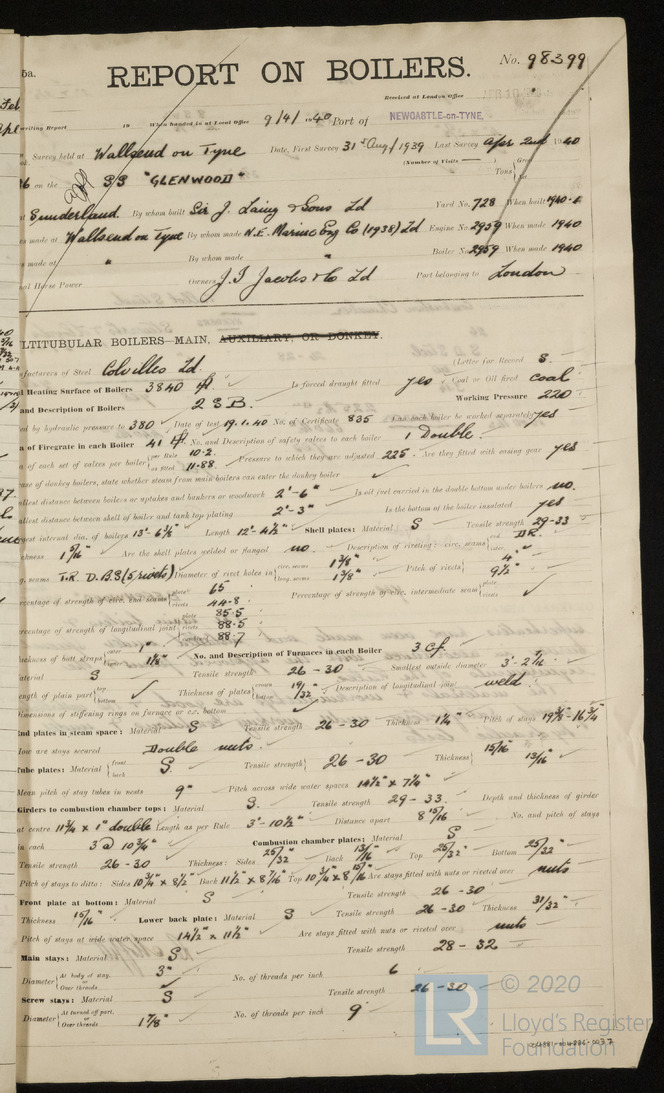 5a.
REPORT ON BOILERS.
No. 98399
Received at London Office
Writing Report 19 When handed in at Local Office 9/4/1940 Port of NEWCASTLE-on-TYNE,
Survey held at Wallsend on Tyne Date, First Survey 31st Aug/1939 Last Survey Apr 2nd 1940
(Number of Visits)
on the SS "GLENWOOD" Tons { Gross
Net
at Sunderland. By whom built Sir J. Laing & Sons Ld Yard No. 728 When built 1940-4
s made at Wallsend on Tyne By whom made N.E. Marine Eng Co (1938) Ld Engine No 2959 When made 1940
made at " By whom made " Boiler No 2959 When made 1940
al Horse Power Owners J. I Jacobs & Co Ld Port belonging to London
LTITUBULAR BOILERS—MAIN, AUXILIARY, OR DONKEY.
facturers of Steel Colvilles Ld. (Letter for Record S.
l Heating Surface of Boilers 3840 Is forced draught fitted yes Coal or Oil fired coal
and Description of Boilers 2 S.B. Working Pressure 220
ed by hydraulic pressure to 380 Date of test 19.1.40 No. of Certificate 835 Can each boiler be worked separately yes
a of Firegrate in each Boiler 41 No. and Description of safety valves to each boiler 1 Double.
a of each set of valves per boiler { per Rule 10.2
as fitted 11.88 Pressure to which they are adjusted 225. Are they fitted with easing gear yes
case of donkey boilers, state whether steam from main boilers can enter the donkey boiler
llest distance between boilers or uptakes and bunkers or woodwork 2'-6" Is oil fuel carried in the double bottom under boilers no.
llest distance between shell of boiler and tank top plating 2'-3" Is the bottom of the boiler insulated yes
est internal dia. of boilers 13'-6⅜" Length 12'-4½" Shell plates: Material S Tensile strength 29-33
ckness 1 5/16" Are the shell plates welded or flanged no. Description of riveting: circ. seams { end DR.
g. seams T.R. D.B.S (5 rivets) Diameter of rivet holes in { circ. seams 1⅜"
long. seams 1⅜" Pitch of rivets { 4"
9½"
rcentage of strength of circ. end seams { plate 65
rivets 44.8 Percentage of strength of circ. intermediate seam { plate
rivets
rcentage of strength of longitudinal joint { plate 85.5
rivets 88.5
88.7
ickness of butt straps { 1"
1⅛" No. and Description of Furnaces in each Boiler 3 Cf.
aterial S Tensile strength 26-30 Smallest outside diameter 3'-2 7/16"
ngth of plain part { top
bottom Thickness of plates { crown
bottom 19/32" Description of longitudinal joint weld.
Dimensions of stiffening rings on furnace or c.c. bottom
End plates in steam space: Material S Tensile strength 26-30 Thickness 1¼" Pitch of stays
How are stays secured Double nuts.
Tube plates: Material { front
back S. Tensile strength { 26-30 Thickness { 15/16"
13/16"
Mean pitch of stay tubes in nests 9" Pitch across wide water spaces 14½" x 7¼"
Girders to combustion chamber tops: Material S. Tensile strength 29-33. Depth and thickness of girder
at centre 11¾ x 1" double Length as per Rule 3'-10½" Distance apart 8 15/16" No. and pitch of stays
in each 3 @ 10¾" Combustion chamber plates: Material S
Tensile strength 26-30 Thickness: Sides 25/32" Back Top 25/32" Bottom 25/32"
Pitch of stays to ditto: Sides 10¾" x 8½" Back 11½" x 8 7/16" Top 10¾" x 8 15/16" Are stays fitted with nuts or riveted over nuts
Front plate at bottom: Material S Tensile strength 26-30
Thickness 15/16" Lower back plate: Material S Tensile strength 26-30 Thickness 31/32"
Pitch of stays at wide water space 14½" x 11½" Are stays fitted with nuts or riveted over nuts
Main stays: Material S Tensile strength 28-32
Diameter { At body of stay, 3"
or
Over threads No. of threads per inch 6
Screw stays: Material S Tensile strength 26-30
Diameter { At turned off part,
or
Over threads 1⅞" No. of threads per inch 9
© 2020
LR Lloyd's Register
Foundation